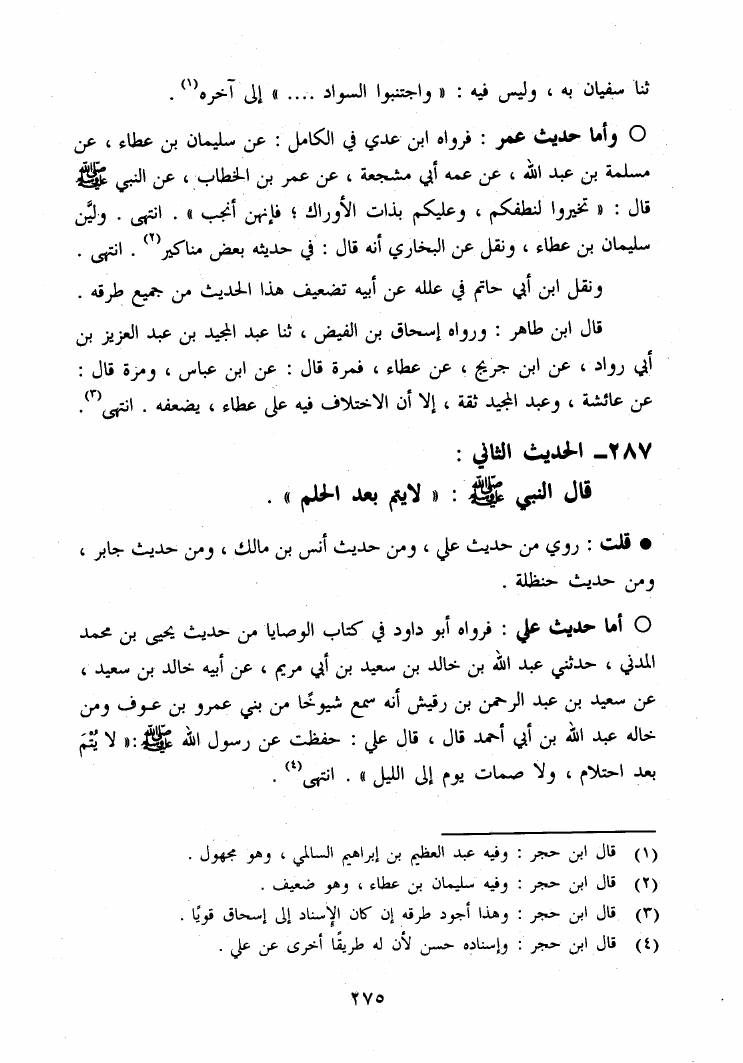 ثنا سفيان به ، وليس فيه : « واجتنبوا السواد .... » إلى آخره(١) .
○ وأما حديث عمر : فرواه ابن عدي في الكامل : عن سليمان بن عطاء ، عن
مسلمة بن عبد الله ، عن عمه أبي مشجعة ، عن عمر بن الخطاب ، عن النبي ﷺ
قال : « تخيروا لنطفكم ، وعليكم بذات الأوراك ؛ فإنهن أنجب » . انتهى . وليَّن
سليمان بن عطاء ، ونقل عن البخاري أنه قال : في حديثه بعض مناكير(٢) . انتهى .
ونقل ابن أبي حاتم في علله عن أبيه تضعيف هذا الحديث من جميع طرقه .
قال ابن طاهر : ورواه إسحاق بن الفيض ، ثنا عبد المجيد بن عبد العزيز بن
أبي رواد ، عن ابن جريج ، عن عطاء ، فمرة قال : عن ابن عباس ، ومرة قال :
عن عائشة ، وعبد المجيد ثقة ، إلا أن الاختلاف فيه على عطاء ، يضعفه . انتهى(٣).
٢٨٧ـ الحديث الثاني :
قال النبي ﷺ : « لايتم بعد الحلم » .
● قلت : روي من حديث علي ، ومن حديث أنس بن مالك ، ومن حديث جابر ،
ومن حديث حنظلة .
○ أما حديث علي : فرواه أبو داود في كتاب الوصايا من حديث يحيى بن محمد
المدني ، حدثني عبد الله بن خالد بن سعيد بن أبي مريم ، عن أبيه خالد بن سعيد ،
عن سعيد بن عبد الرحمن بن رقيش أنه سمع شيوخًا من بني عمرو بن عوف ومن
خاله عبد الله بن أبي أحمد قال ، قال علي : حفظت عن رسول الله ﷺ :« لا يُتْمَ
بعد احتلام ، ولا صمات يوم إلى الليل » . انتهى(٤) .
(١) قال ابن حجر : وفيه عبد العظيم بن إبراهيم السالمي ، وهو مجهول .
(٢) قال ابن حجر : وفيه سليمان بن عطاء ، وهو ضعيف .
(٣) قال ابن حجر : وهذا أجود طرقه إن كان الإسناد إلى إسحاق قويًا .
(٤) قال ابن حجر : وإسناده حسن لأن له طريقًا أخرى عن علي .
٢٧٥